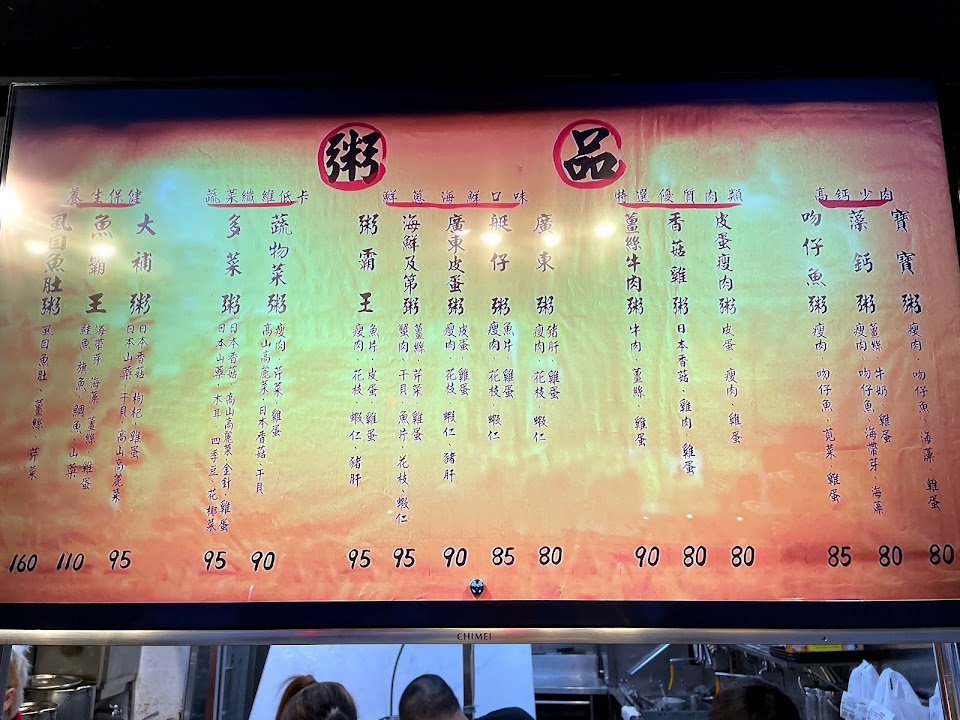 粥品
高鈣少肉
寶寶粥
瘦肉、吻仔魚、海藻、雞蛋
80
藻鈣粥
薑絲、牛奶、雞蛋
瘦肉、吻仔魚、海帶芽、海藻
80
吻仔魚粥
瘦肉、吻仔魚、莧菜、雞蛋
85
特選優質肉類
皮蛋瘦肉粥
皮蛋、瘦肉、雞蛋
80
香菇雞粥
日本香菇、雞肉、雞蛋
80
薑絲牛肉粥
牛肉、薑絲、雞蛋
90
鮮蔥海鮮口味
廣東粥
豬肝、雞蛋
瘦肉、花枝、蝦仁
80
艇仔粥
魚片、雞蛋
瘦肉、花枝、蝦仁
85
廣東皮蛋粥
皮蛋、雞蛋
瘦肉、花枝、蝦仁、豬肝
90
海鮮及第粥
薑絲、芹菜、雞蛋
蟹肉、干貝、魚片、花枝、蝦仁
95
粥霸王
魚片、皮蛋、雞蛋
瘦肉、花枝、蝦仁、豬肝
95
蔬菜纖維低卡
蔬物菜粥
瘦肉、芹菜、雞蛋
高山高麗菜、日本香菇、干貝
90
多菜粥
日本香菇、高山高麗菜、金針、雞蛋
日本山藥、木耳、四季豆、花椰菜
95
養生保健
大補粥
日本香菇、枸杞、雞蛋
日本山藥、干貝、高山高麗菜
95
魚霸王
海帶芽、海藻、薑絲、雞蛋
鮭魚、旗魚、鯛魚、山藥
110
虱目魚肚粥
虱目魚肚、薑絲、芹菜
160
CHIMEI